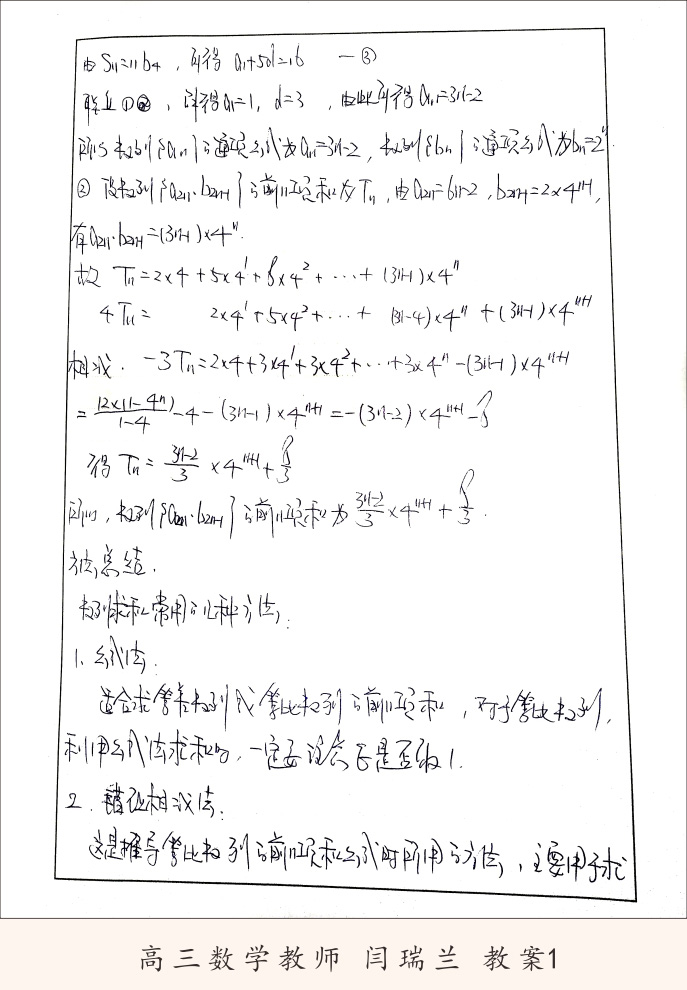 由S₁₁=11b₄，可得 a₁+5d=16 —③
联立①②，解得a₁=1，d=3，由此可得aₙ=3n-2
所以数列{aₙ}的通项公式为aₙ=3n-2，数列{bₙ}的通项公式为bₙ=2ⁿ.
② 设数列{a₂ₙ·b₂ₙ₋₁}的前n项和为Tₙ，由a₂ₙ=6n-2，b₂ₙ₋₁=2×4ⁿ⁻¹，
有a₂ₙ·b₂ₙ₋₁=(3n-1)×4ⁿ.
故 Tₙ=2×4+5×4¹+8×4²+…+(3n-1)×4ⁿ
4Tₙ= 2×4¹+5×4²+…+(3n-4)×4ⁿ+(3n-1)×4ⁿ⁺¹
相减. -3Tₙ=2×4+3×4¹+3×4²+…+3×4ⁿ-(3n-1)×4ⁿ⁺¹
=12×(1-4ⁿ)/1-4 -4-(3n-1)×4ⁿ⁺¹=-(3n-2)×4ⁿ⁺¹-8
得 Tₙ=3n-2/3 ×4ⁿ⁺¹+8/3
所以，数列{a₂ₙ·b₂ₙ₋₁}的前n项和为3n-2/3×4ⁿ⁺¹+8/3.
方法总结.
数列求和常用的几种方法:
1. 公式法.
适合求等差数列或等比数列的前n项和，对于等比数列，
利用公式法求和时，一定要讨论q是否取1.
2. 错位相减法:
这是推导等比数列的前n项和公式时所用的方法，主要用于求
高三数学教师 闫瑞兰 教案1